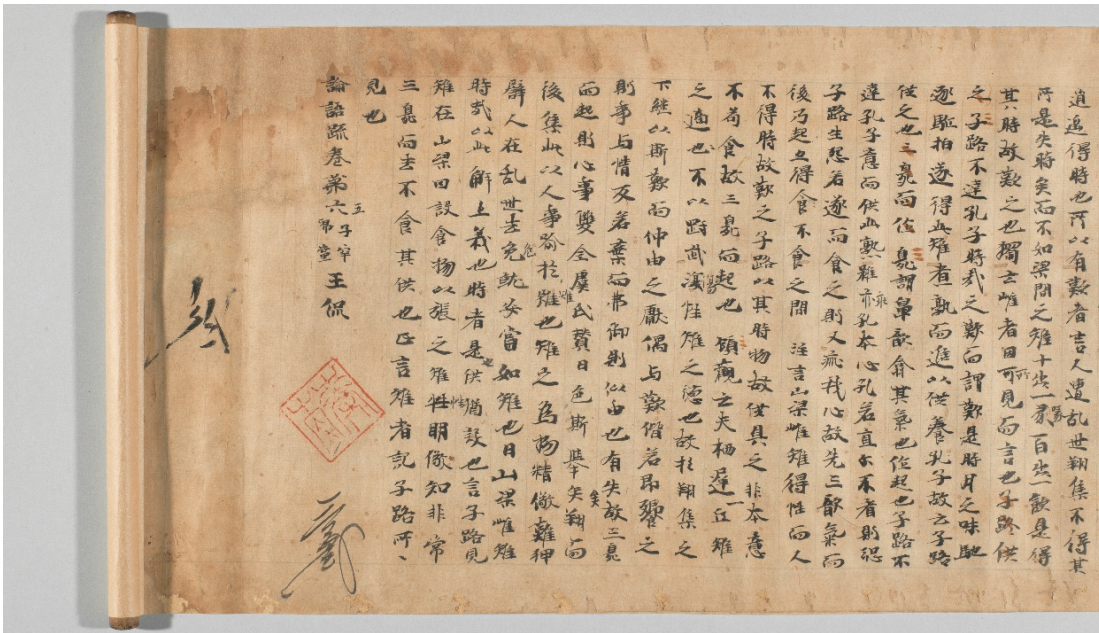 逍遥得時也所以有歎者言人遭乱世翔集不得其
所是失時矣而不如梁間之雉十步一啄百步一飲是得
其時故歎之也獨云雌者因所可見而言也子路供
之子路不達孔子時哉之歎而謂歎是時月之味馳
逐駈拍遂得此雉者熟而進以供養孔子故云子路
供之也三臭而作臭謂鼻歆翕其氣也作起也子路不
達孔子意而供此熟雉乖孔本心孔若直尒不者則恐
子路生怨若遂而食之則又乖我心故先三歆氣而
後乃起亦得食不食之間 注言山梁雌雉得性而人
不得時故歎之子路以其時物故供具之非本意
不苟食故三臭而起也 顧觀云夫栖遲一丘雉
之適也不以剛武傷性雉之德也故於翔集之
下繼以斯歎而仲由之獻偶与歎偕若即饗之
則事与情反若棄而弗御則似由也有失故三臭
而起則心事雙全虞氏贊曰色斯舉矣翔而
後集此以人事喻於雉也雉之為物精儆難狎
譬人在乱世去危就安當如雉也曰山梁雌雉
時哉以此解上義也時者是也供猶設也言子路見
雉在山梁因設食物以張之雉性明儆知非常
三臭而去不食其供也正言雌者記子路所
見也
論語疏卷第六 五子罕 王侃